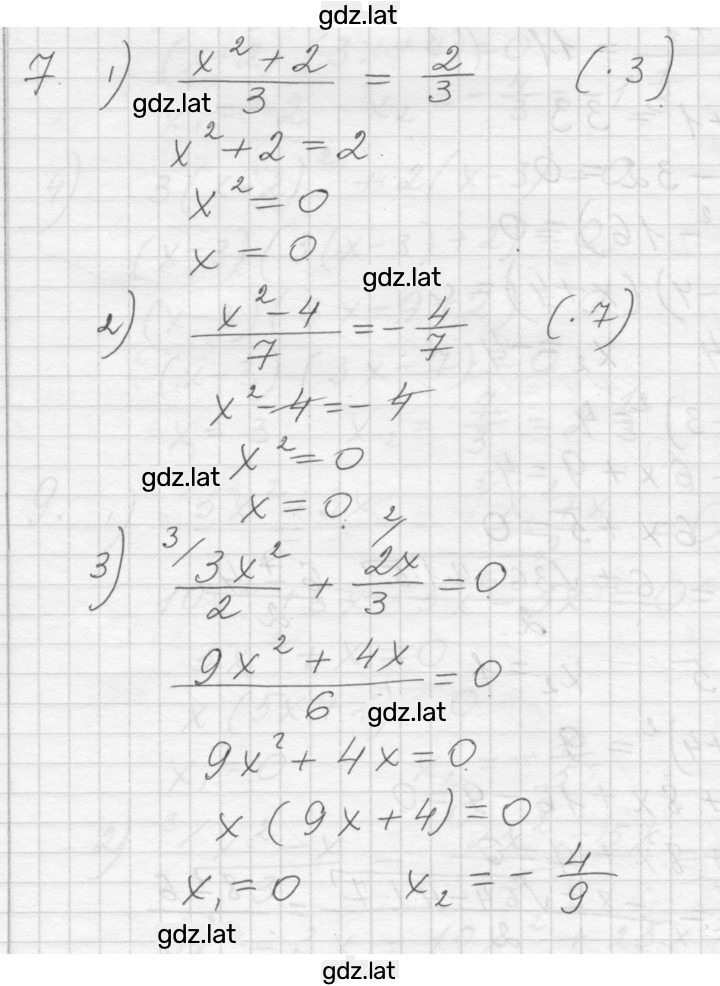 gdz.lat
7 1) (x² + 2)/3 = 2/3 (· 3)
gdz.lat
x² + 2 = 2
x² = 0
x = 0
gdz.lat
2) (x² - 4)/7 = - 4/7 (· 7)
x² - 4 = - 4
x² = 0
gdz.lat
x = 0
3) ³⁄ 3x²/2 + ²⁄ 2x/3 = 0
(9x² + 4x)/6 = 0
gdz.lat
9x² + 4x = 0
x (9x + 4) = 0
x₁ = 0 x₂ = - 4/9
gdz.lat
gdz.lat